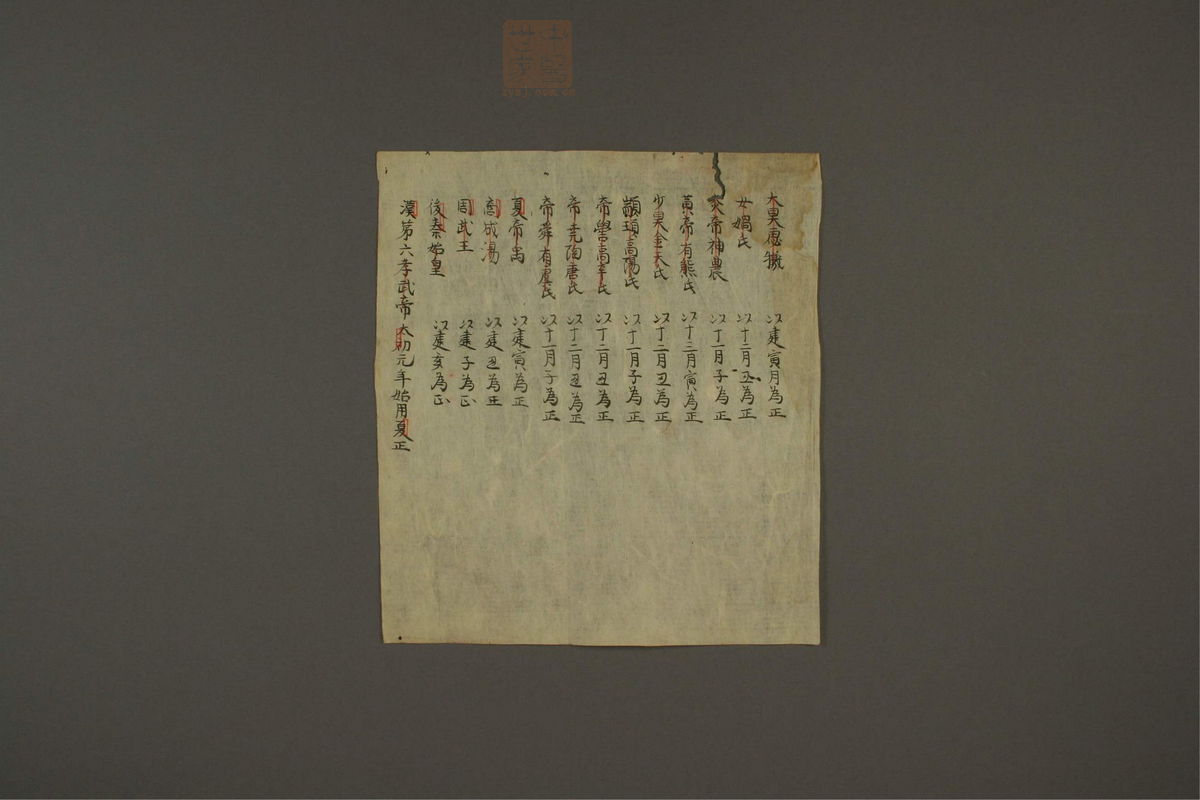 大昊虙犧　以建寅月為正
女媧氏　以十二月丑為正
炎帝神農　以十一月子為正
黃帝有熊氏　以十三月寅為正
少昊金天氏　以十二月丑為正
顓頊高陽氏　以十一月子為正
帝嚳高辛氏　以十二月丑為正
帝堯陶唐氏　以十二月丑為正
帝舜有虞氏　以十一月子為正
夏帝禹　以建寅為正
成湯　以建丑為正
周武王　以建子為正
後秦始皇　以建亥為正
漢第六孝武帝太初元年始用夏正